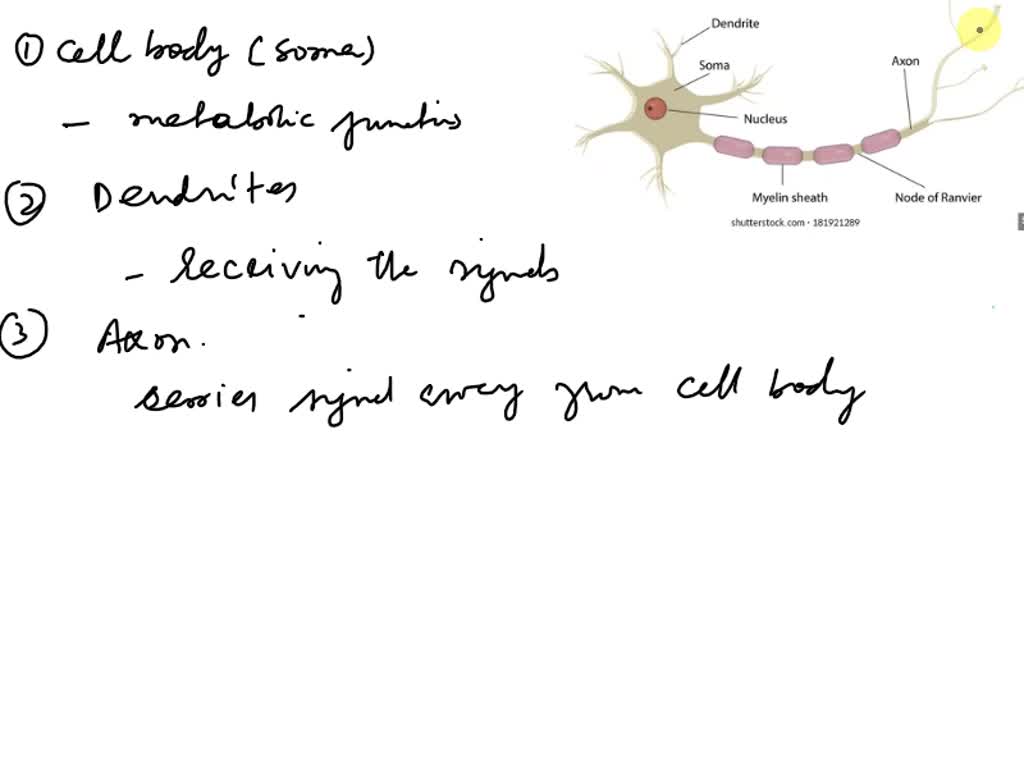 ① Cell body (soma)
– metabolic functions
② Dendrites
– receiving the signals
③ Axon.
carries signal away from cell body
Dendrite
Soma
Nucleus
Axon
Myelin sheath
Node of Ranvier
shutterstock.com · 181921289